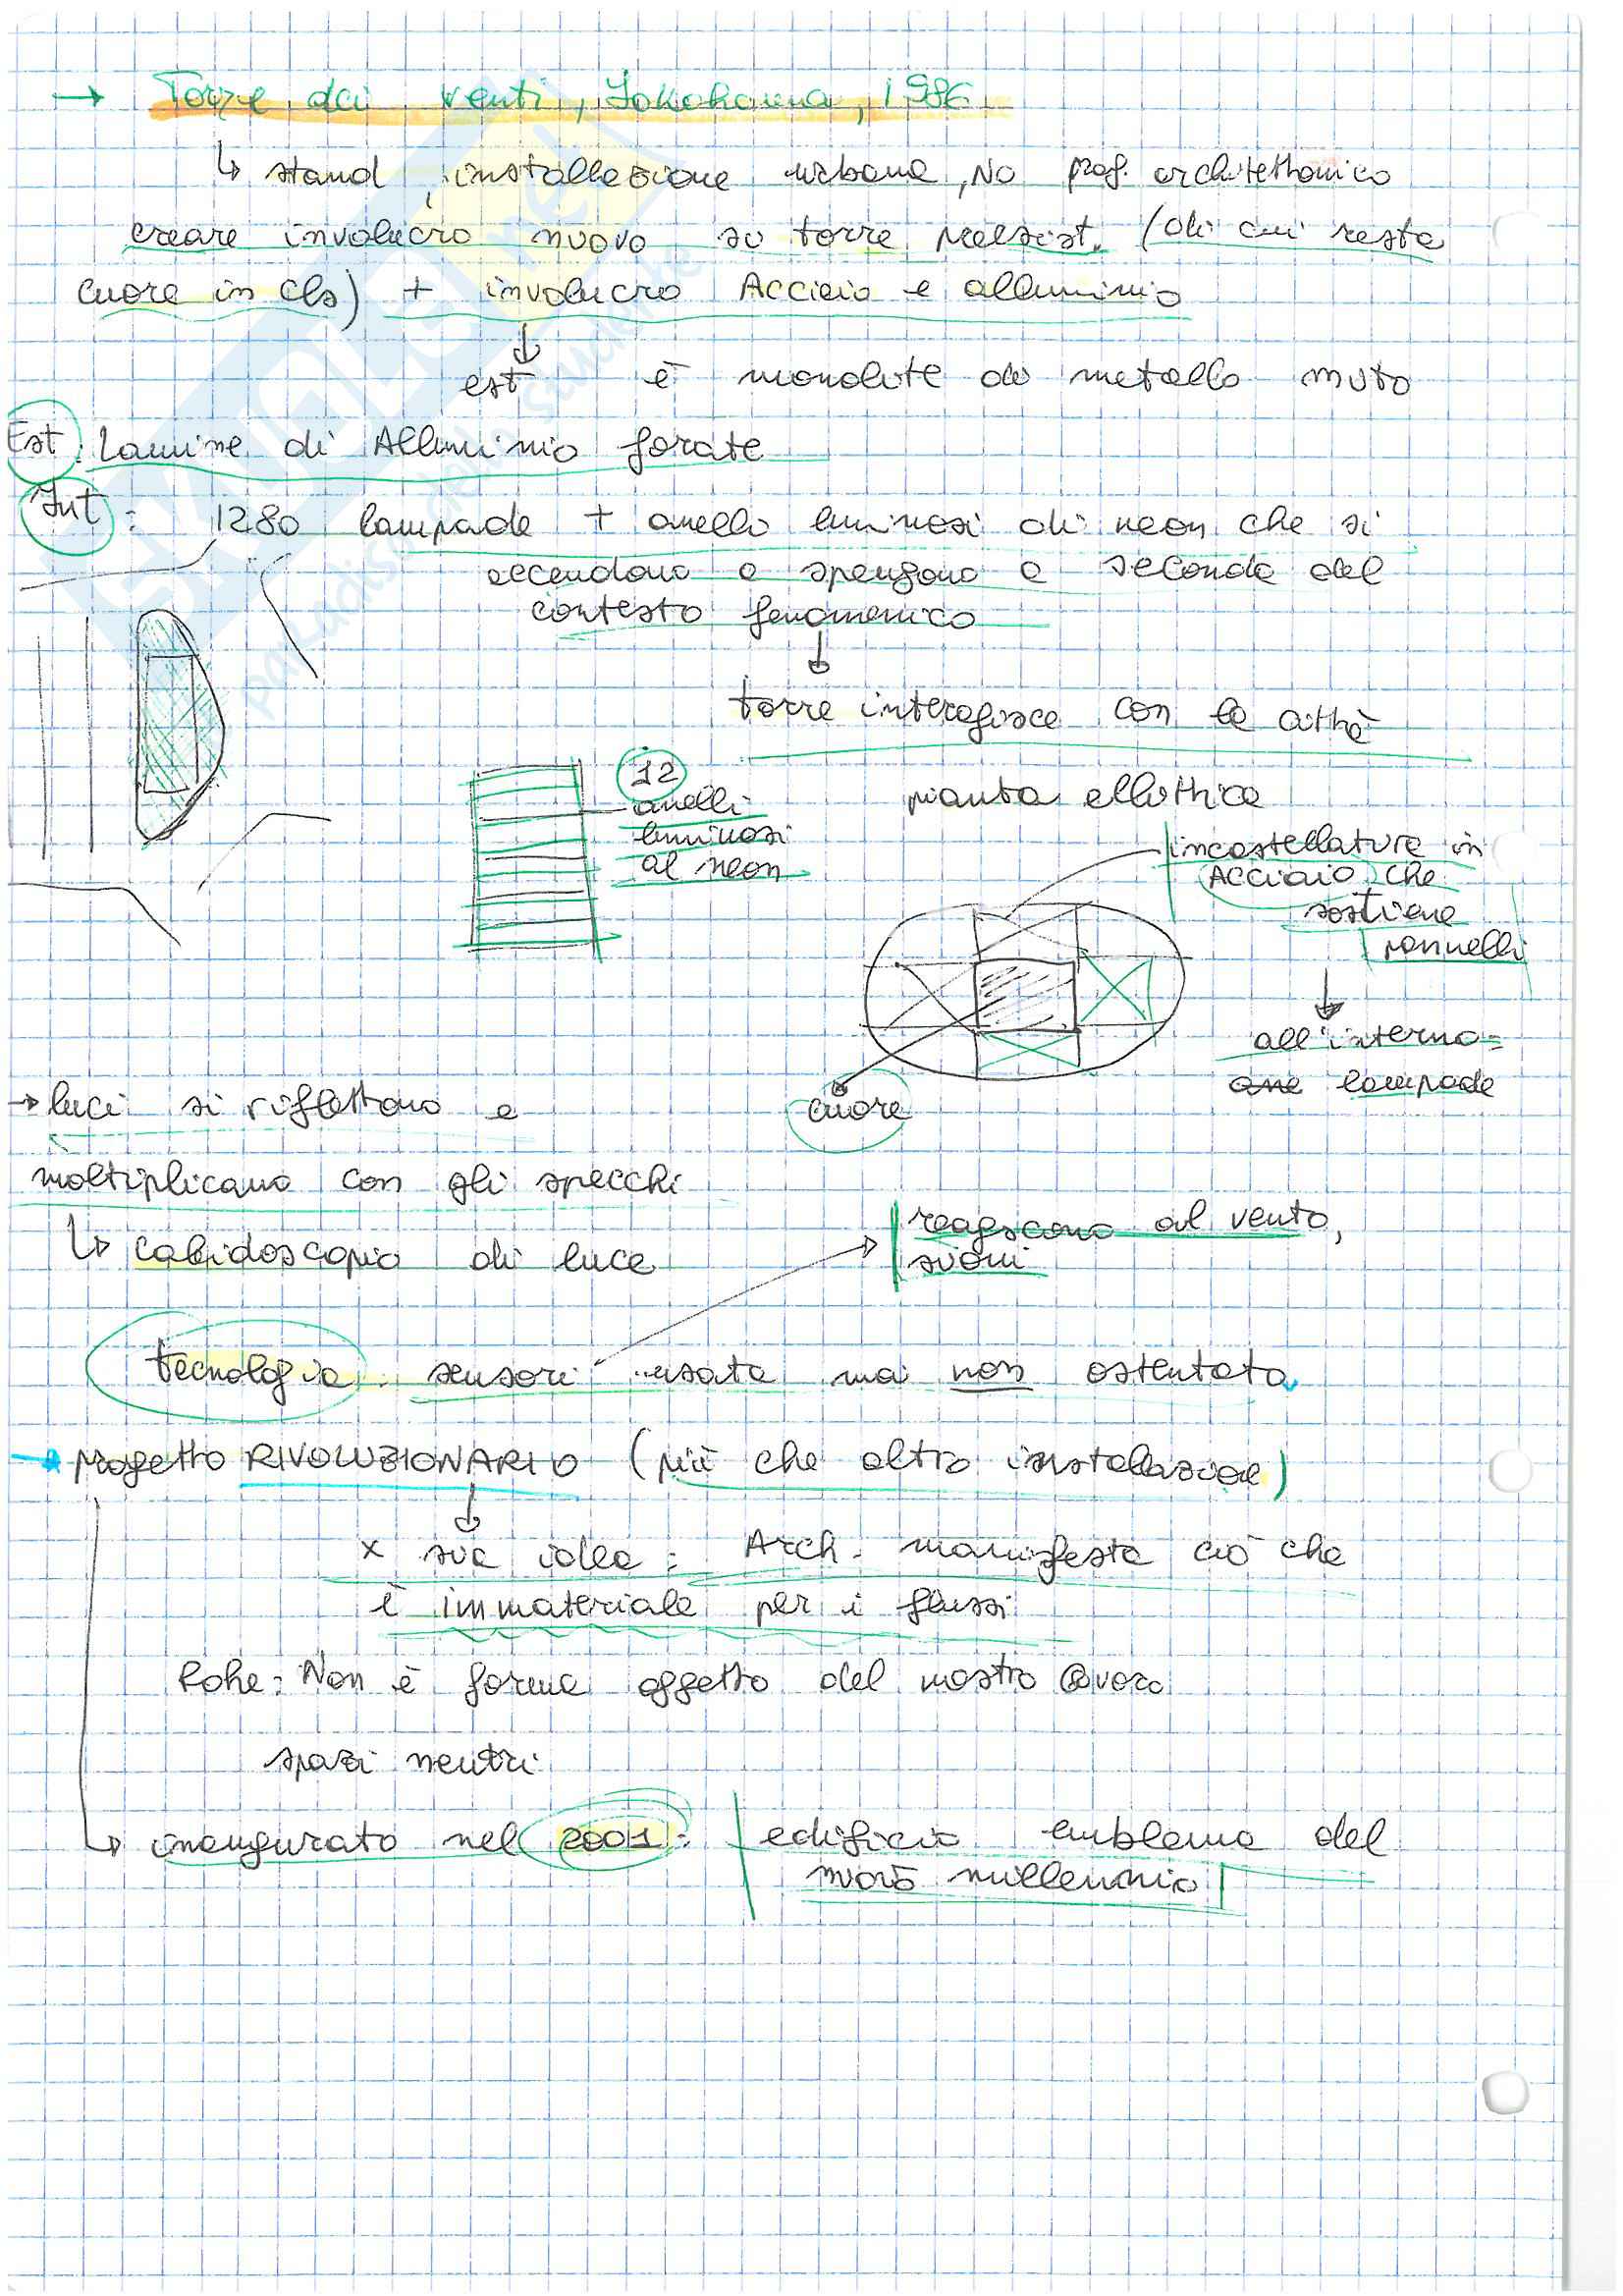 → Torre dei venti, Yokohama, 1986
↳ stand, installazione urbana, No prog. architettonico
creare involucro nuovo su torre preesist. (di cui resta
cuore in cls) + involucro Acciaio e alluminio
↓
est è monolite di metallo muto
Est: Lamine di Alluminio forate
Int: 1280 lampade + anelli luminosi di neon che si
accendono e spengono a seconda del
contesto fenomenico
↓
torre interagisce con la città
12
anelli
luminosi
al neon
pianta ellittica
incastellature in
Acciaio che
sostiene
pannelli
↓
all'interno =
lampade
cuore
→ luci si riflettono e
moltiplicano con gli specchi
↳ caleidoscopio di luce
reagiscono al vento,
suoni
tecnologia: sensori usata mai non ostentata
→ progetto RIVOLUZIONARIO (più che altro installazione)
↓
x sua idea: Arch. manifesta ciò che
è immateriale per i flussi
Rohe: Non è forma oggetto del nostro lavoro
spazi neutri
↳ inaugurato nel 2001: edificio emblema del
nuovo millennio